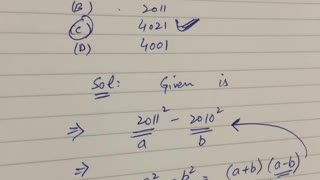 (B) . 2011
(C) 4021
(D) 4001
Sol: Given is
⇒ 2011² - 2010²
a b
⇒ a² - b² = (a+b) (a-b)